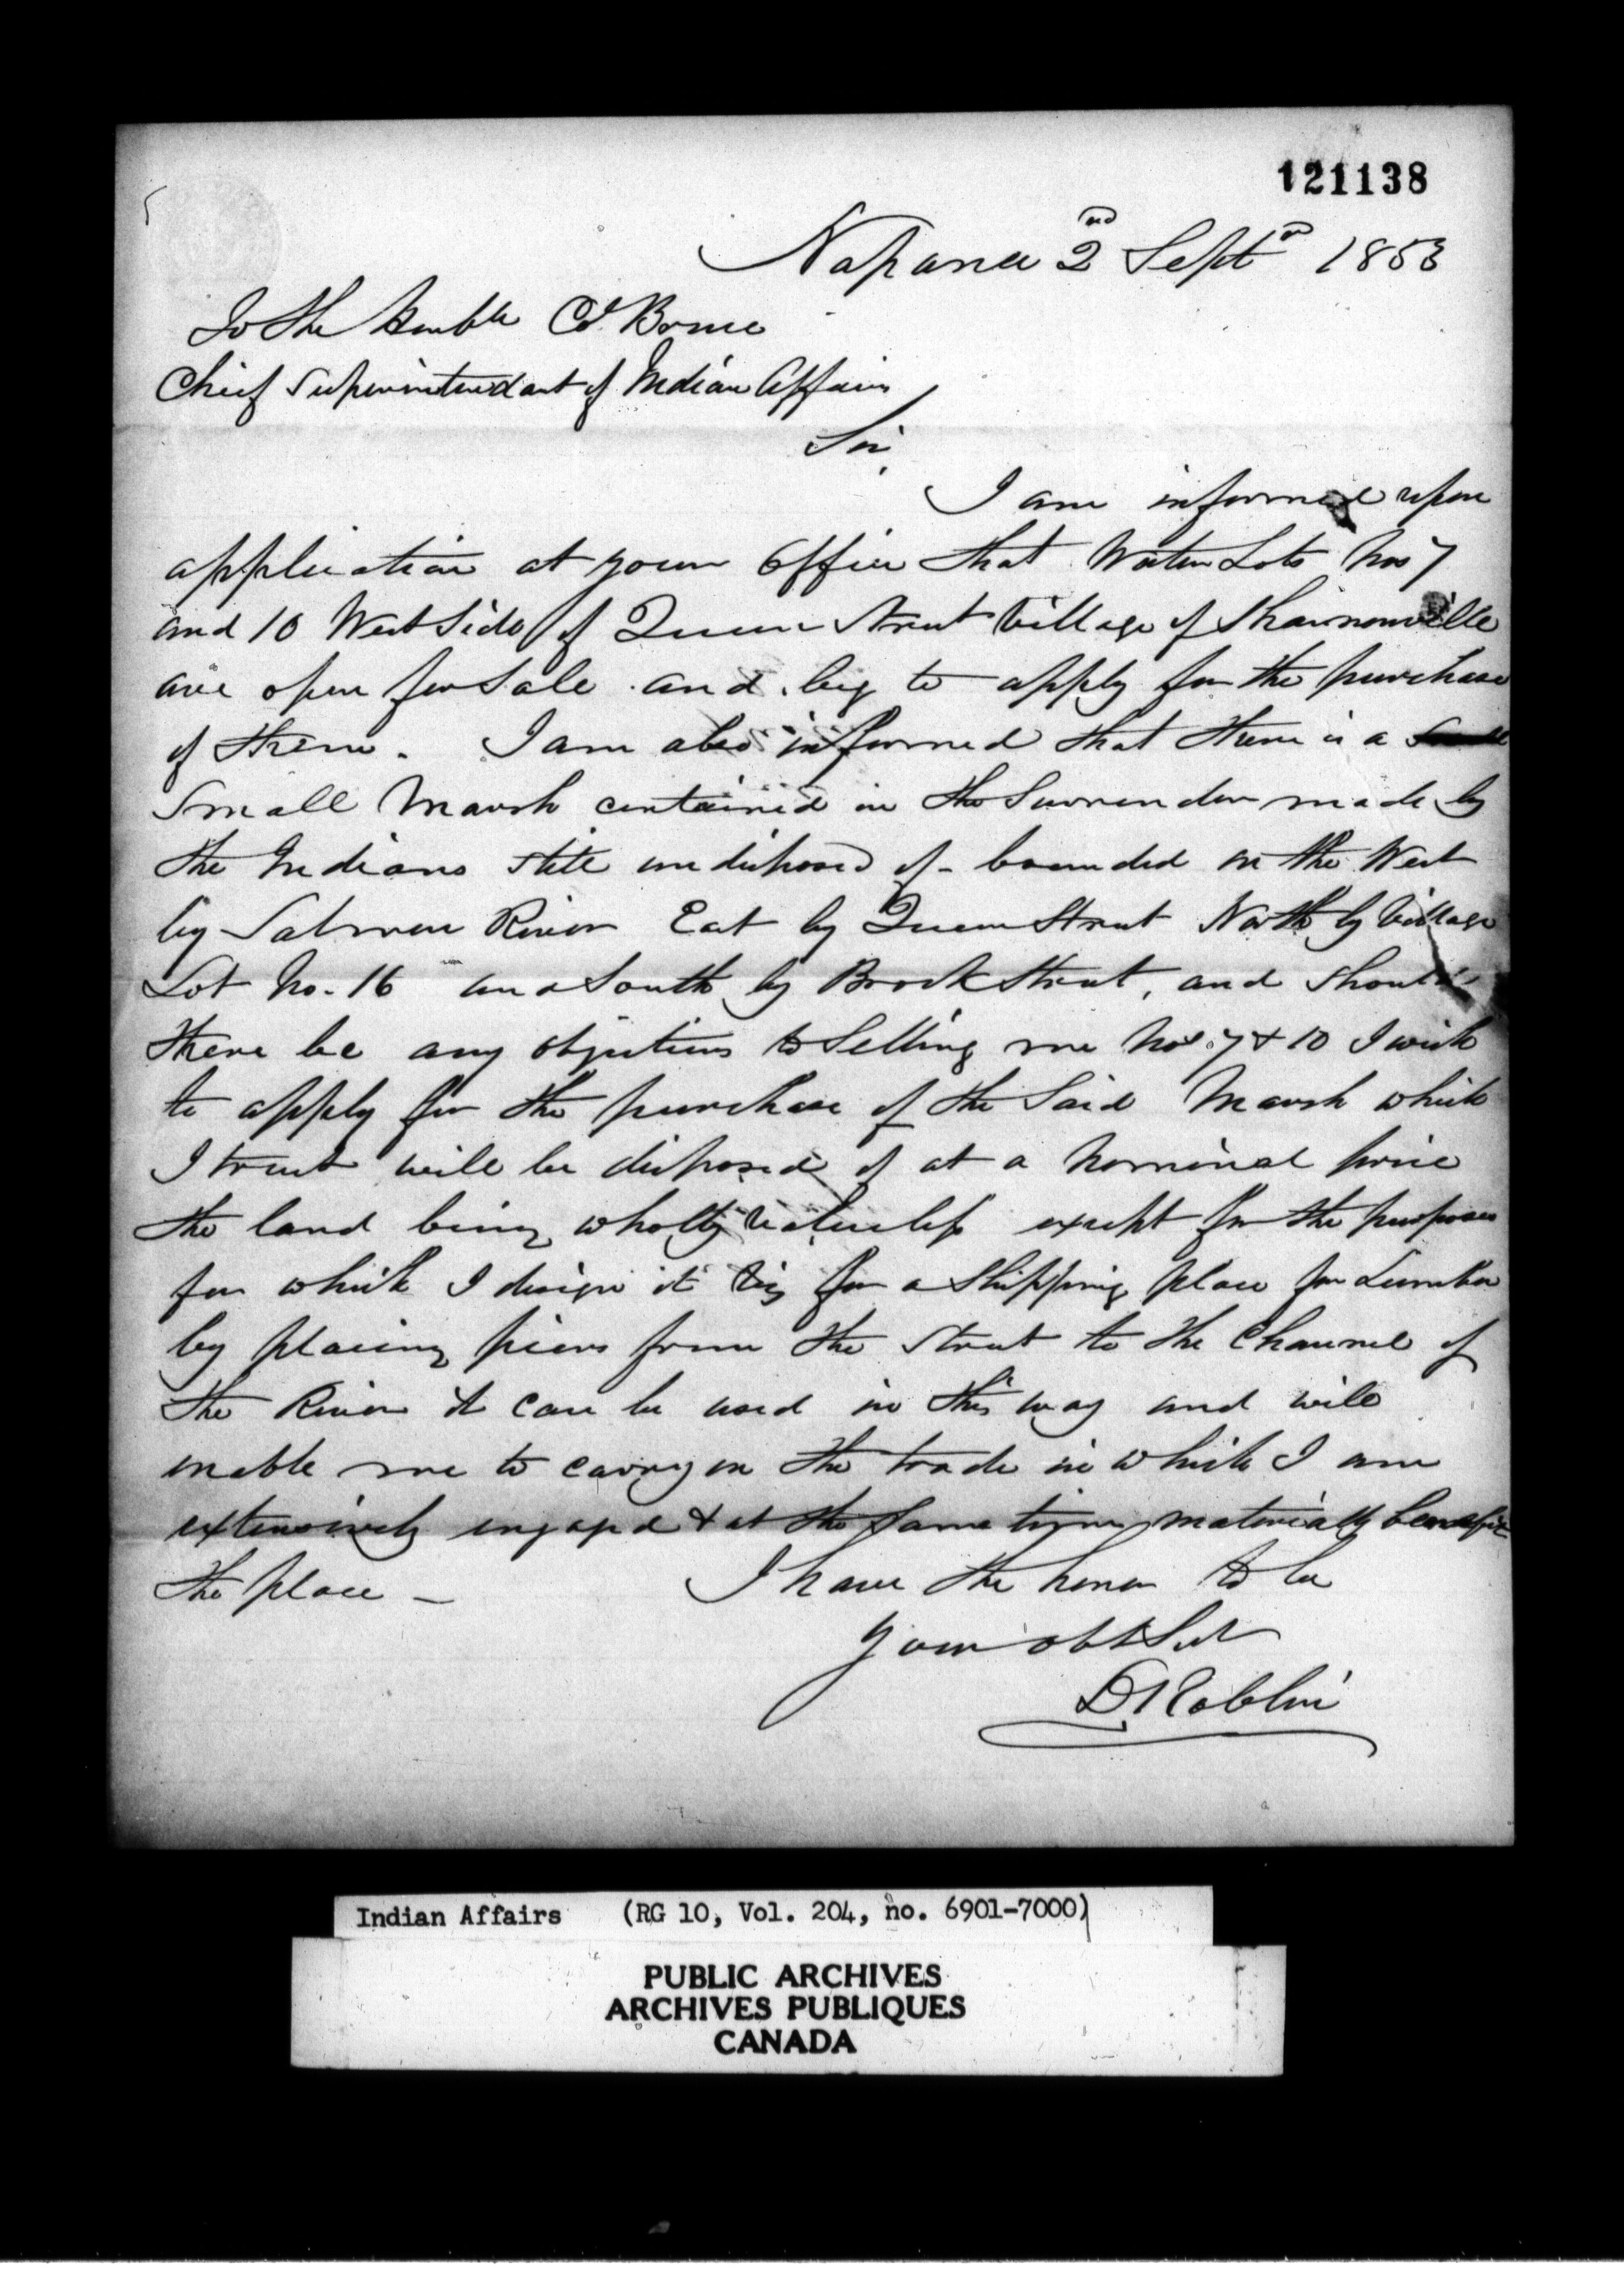 121138
Napanee 2nd Septr 1853
To the Honble Col Bruce
Chief Superintendant of Indian Affairs
Sir,
I am informed upon
application at your Office that Water Lots Nos 7
and 10 West Side of Queen Street Village of Shannonville
are open for Sale and beg to apply for the purchase
of them. I am also informed that there is a small
Small Marsh contained in the Surrender made by
the Indians still undisposed of - bounded on the West
by Salmon River Eat by Queen Street North by Village
Lot No. 16 and South by Brock Street, and should
there be any objections to Selling me Nos. 7 & 10 I wish
to apply for the purchase of the Said Marsh which
I trust will be disposed of at a Nominal price
the land being wholly valueless except for the purposes
for which I design it viz for a Shipping place for Lumber
by placing piers from the Street to the Channel of
the River it can be used in this way and will
enable me to carry on the trade in which I am
extensively engaged & at the same time materially benefit
the place -
I have the honor to be
Your obt Svt
D Roblin
Indian Affairs (RG 10, Vol. 204, no. 6901-7000)
PUBLIC ARCHIVES
ARCHIVES PUBLIQUES
CANADA